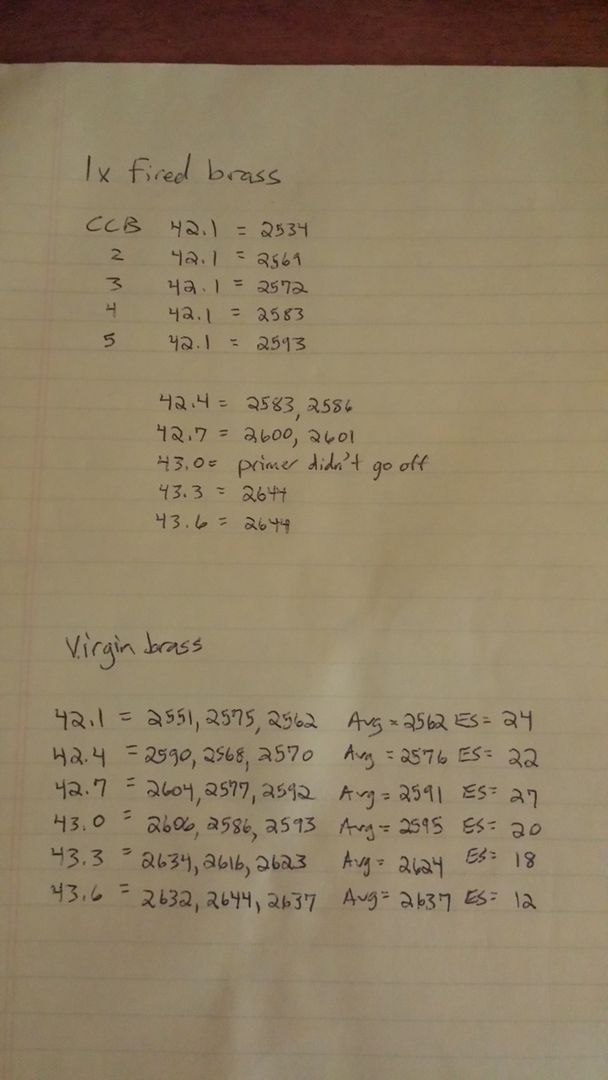 1x fired brass
CCB 42.1 = 2534
2 42.1 = 2569
3 42.1 = 2572
4 42.1 = 2583
5 42.1 = 2593
42.4 = 2583, 2586
42.7 = 2600, 2601
43.0 = primer didn't go off
43.3 = 2644
43.6 = 2644
Virgin brass
42.1 = 2551, 2575, 2562 Avg = 2562 ES = 24
42.4 = 2590, 2568, 2570 Avg = 2576 ES = 22
42.7 = 2604, 2577, 2592 Avg = 2591 ES = 27
43.0 = 2606, 2586, 2593 Avg = 2595 ES = 20
43.3 = 2634, 2616, 2623 Avg = 2624 ES = 18
43.6 = 2632, 2644, 2637 Avg = 2637 ES = 12